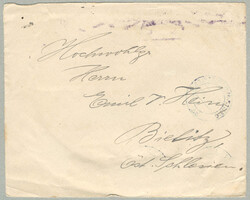 Hochwohlg.
Herrn
Emil v. Hein
Bielitz,
Öst. Schlesien.